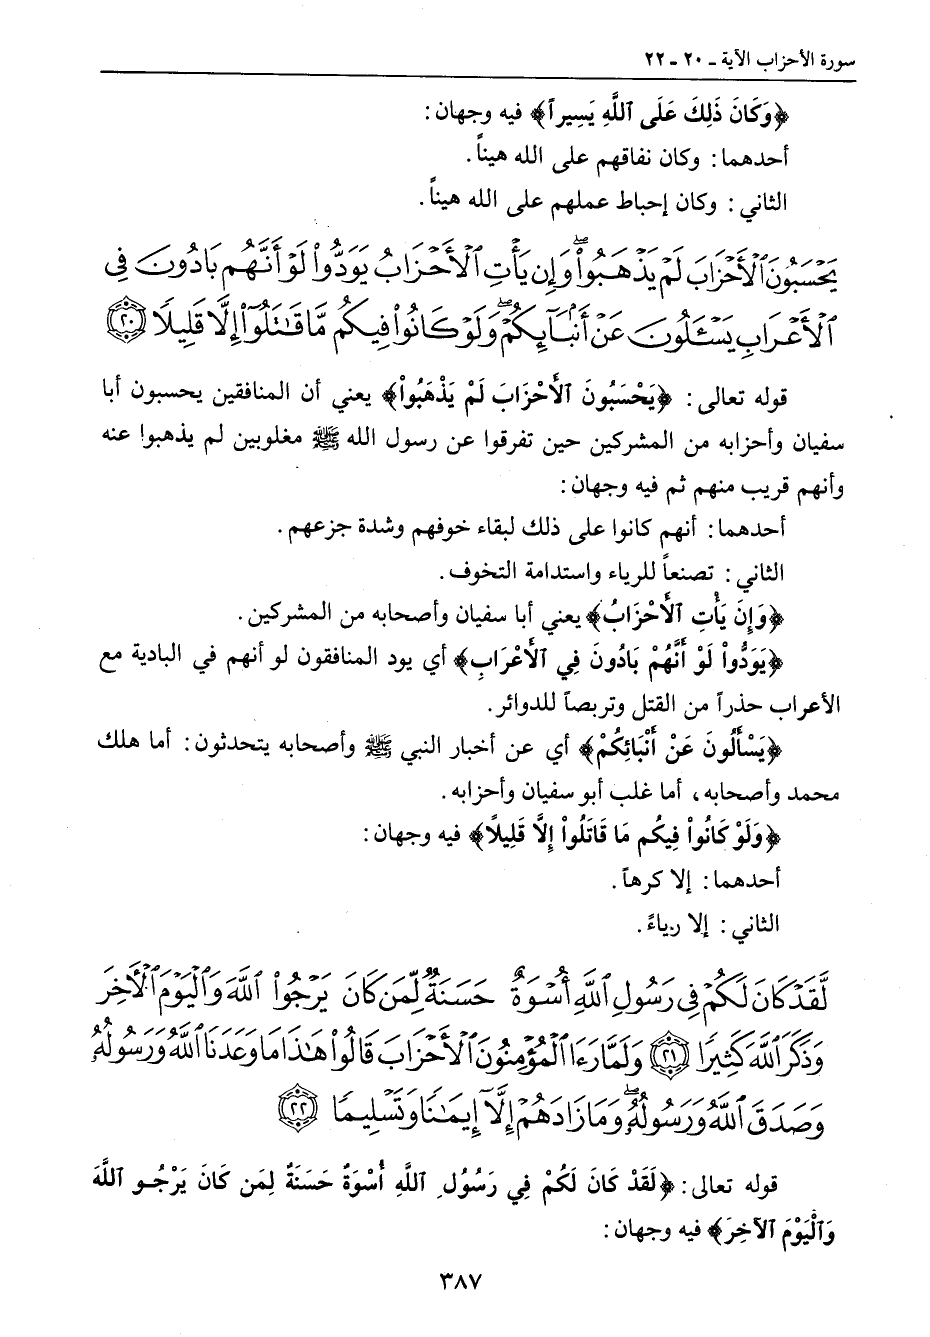 سورة الأحزاب الآية ـ ٢٠ ـ ٢٢
﴿وَكَانَ ذَلِكَ عَلَى ٱللَّهِ يَسِيراً﴾ فيه وجهان:
أحدهما: وكان نفاقهم على الله هيناً.
الثاني: وكان إحباط عملهم على الله هيناً.
يَحْسَبُونَ ٱلْأَحْزَابَ لَمْ يَذْهَبُوا۟ ۖ وَإِن يَأْتِ ٱلْأَحْزَابُ يَوَدُّوا۟ لَوْ أَنَّهُم بَادُونَ فِى
ٱلْأَعْرَابِ يَسْـَٔلُونَ عَنْ أَنۢبَآئِكُمْ ۖ وَلَوْ كَانُوا۟ فِيكُم مَّا قَـٰتَلُوٓا۟ إِلَّا قَلِيلًا ٢٠
قوله تعالى: ﴿يَحْسَبُونَ ٱلأَحْزَابَ لَمْ يَذْهَبُواْ﴾ يعني أن المنافقين يحسبون أبا
سفيان وأحزابه من المشركين حين تفرقوا عن رسول الله ﷺ مغلوبين لم يذهبوا عنه
وأنهم قريب منهم ثم فيه وجهان:
أحدهما: أنهم كانوا على ذلك لبقاء خوفهم وشدة جزعهم.
الثاني: تصنعاً للرياء واستدامة التخوف.
﴿وَإِنَ يَأْتِ ٱلأَحْزَابُ﴾ يعني أبا سفيان وأصحابه من المشركين.
﴿يَوَدُّواْ لَوْ أَنَّهُمْ بَادُونَ فِي ٱلأَعْرَابِ﴾ أي يود المنافقون لو أنهم في البادية مع
الأعراب حذراً من القتل وتربصاً للدوائر.
﴿يَسْأَلُونَ عَنْ أَنْبَائِكُمْ﴾ أي عن أخبار النبي ﷺ وأصحابه يتحدثون: أما هلك
محمد وأصحابه، أما غلب أبو سفيان وأحزابه.
﴿وَلَوْ كَانُواْ فِيكُم مَا قَاتَلُواْ إِلَّا قَلِيلاً﴾ فيه وجهان:
أحدهما: إلا كرهاً.
الثاني: إلا رياءً.
لَّقَدْ كَانَ لَكُمْ فِى رَسُولِ ٱللَّهِ أُسْوَةٌ حَسَنَةٌ لِّمَن كَانَ يَرْجُوا۟ ٱللَّهَ وَٱلْيَوْمَ ٱلْآخِرَ
وَذَكَرَ ٱللَّهَ كَثِيرًا ٢١ وَلَمَّا رَءَا ٱلْمُؤْمِنُونَ ٱلْأَحْزَابَ قَالُوا۟ هَـٰذَا مَا وَعَدَنَا ٱللَّهُ وَرَسُولُهُۥ
وَصَدَقَ ٱللَّهُ وَرَسُولُهُۥ ۚ وَمَا زَادَهُمْ إِلَّآ إِيمَـٰنًا وَتَسْلِيمًا ٢٢
قوله تعالى: ﴿لَقَدْ كَانَ لَكُمْ فِي رَسُولِ ٱللَّهِ أُسْوَةٌ حَسَنَةٌ لِمَن كَانَ يَرْجُو ٱللَّهَ
وَٱلْيَوْمَ ٱلآخِرَ﴾ فيه وجهان:
٣٨٧